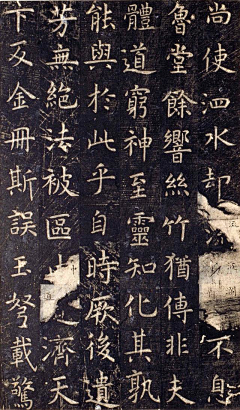 尚使泗水却流不息
魯堂餘響絲竹猶傳非夫
體道窮神至靈知化其孰
能與於此乎自時厥後遺
芳無絕法被區中道濟天
下及金冊斯誤玉弩載驚